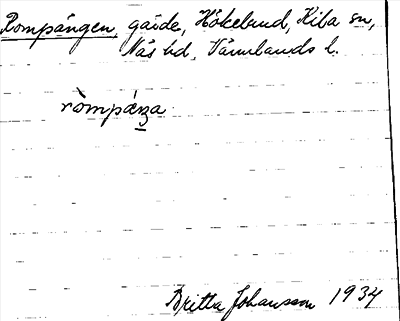 Rompängen, gärde, Hökelund, Kila sn,
Näs hd, Värmlands l.
ròmpáŋa
Britta Johansson 1934